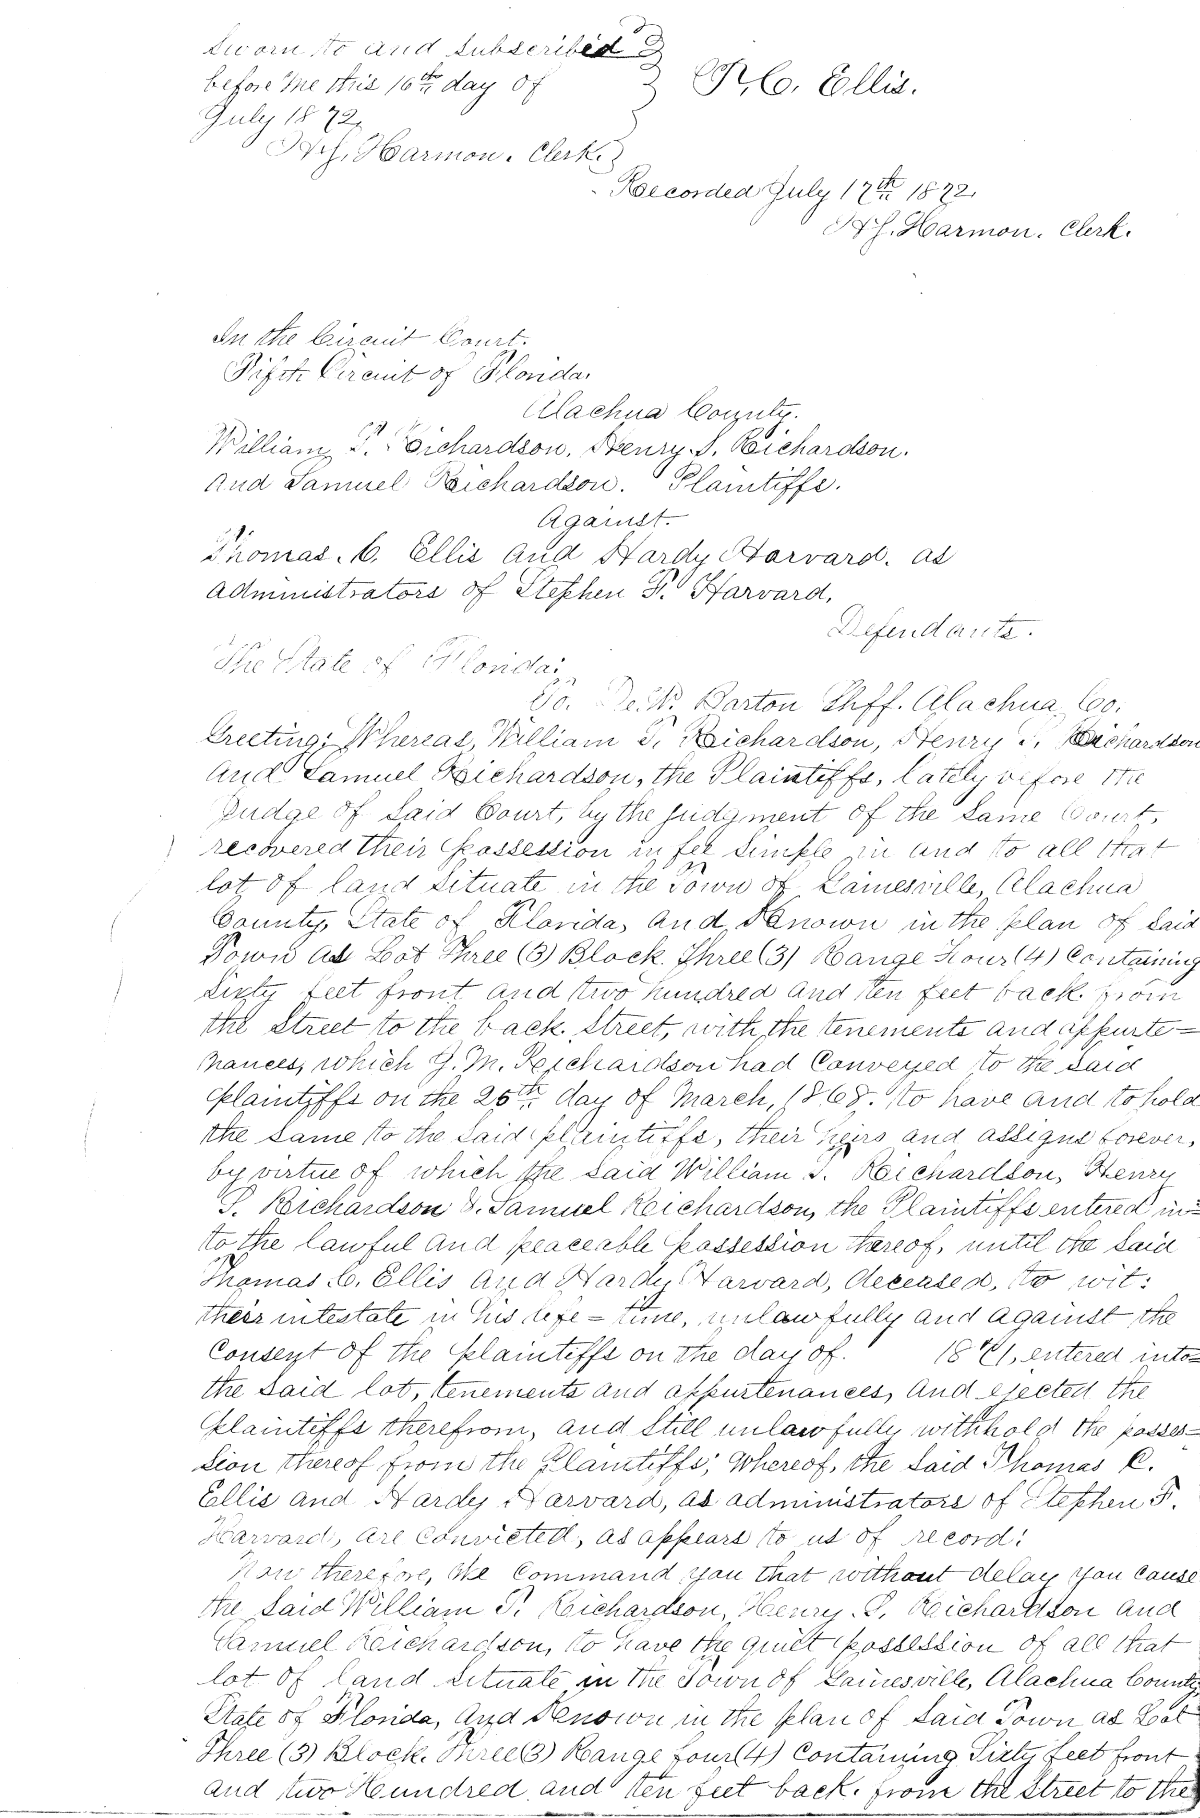 Sworn to and Subscribed
before me this 16th day of
July 1872.
H.S. Harmon. Clerk.
T. C. Ellis.
Recorded July 17th 1872.
H.S. Harmon. Clerk.
In the Circuit Court.
Fifth Circuit of Florida.
Alachua County.
William T. Richardson, Henry S. Richardson.
And Samuel Richardson. Plaintiffs.
Against.
Thomas. C. Ellis and Hardy Harvard. as
administrators of Stephen F. Harvard,
Defendants.
The State of Florida:
To. Barton Shff. Alachua Co.
Greeting; Whereas, William T. Richardson, Henry S. Richardson
And Samuel Richardson, the Plaintiffs, lately before the
Judge of Said Court, by the judgment of the Same Court,
recovered their possession in fee Simple in and to all that
lot of land Situate in the Town of Gainesville, Alachua
County, State of Florida, and Known in the plan of Said
Town as Lot Three (3) Block Three (3) Range Four (4) Containing
Sixty feet front and two hundred and ten feet back from
the Street to the back Street, with the tenements and appurte=
nances, which J. M. Richardson had Conveyed to the Said
plaintiffs on the 25th day of March, 1868. to have and to hold
the same to the Said plaintiffs, their heirs and assigns forever,
by virtue of which the Said William T. Richardson, Henry
S. Richardson & Samuel Richardson, the Plaintiffs entered in=
to the lawful and peaceable possession thereof, until the Said
Thomas C. Ellis and Hardy Harvard, deceased, to wit:
their intestate in his life=time, unlawfully and against the
Consent of the plaintiffs on the day of. 1871, entered into=
the Said lot, tenements and appurtenances, and ejected the
plaintiffs therefrom, and Still unlawfully withhold the posses=
sion thereof from the Plaintiffs; Whereof, the Said Thomas C.
Ellis and Hardy Harvard, as administrators of Stephen F.
Harvard, are convicted, as appears to us of record:
Now therefore, We Command you that without delay you cause
the Said William T. Richardson, Henry S. Richardson and
Samuel Richardson, to have the quiet possession of all that
lot of land Situate in the Town of Gainesville, Alachua County,
State of Florida, and Known in the plan of Said Town as Lot
Three (3) Block Three (3) Range four (4) Containing Sixty feet front
and two Hundred and ten feet back from the Street to the